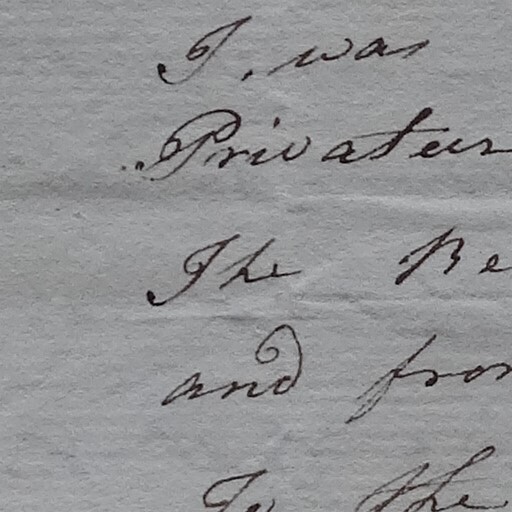 I. was
Privateer
The Be
and from
To the